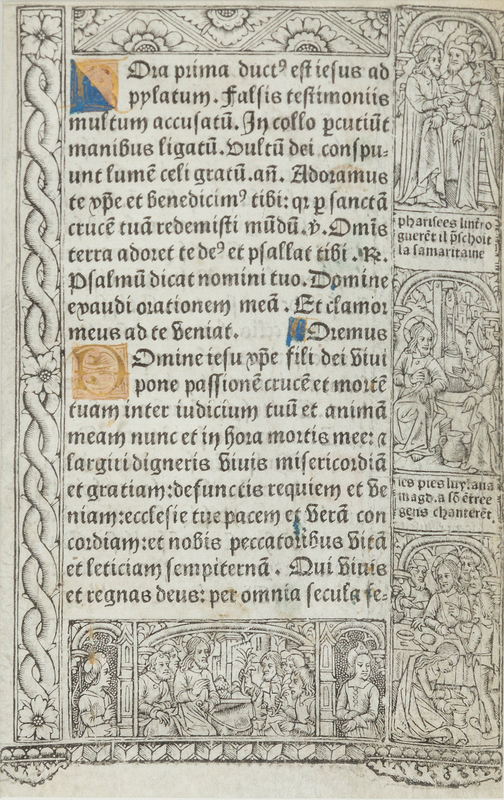 Ora prima duct⁹ est iesus ad
pylatum. Falsis testimoniis
multum accusatū. In collo ꝑcutiūt
manibus ligatū. Vultū dei conspu-
unt lumē celi gratū. añ. Adoramus
te xp̄e et benedicim⁹ tibi: qꝛ ꝑ sanctā
crucē tuā redemisti mūdū. ℣. Om̄is
terra adoret te de⁹ et psallat tibi. ℟.
Psalmū dicat nomini tuo. Domine
exaudi orationem meā. Et clamor
meus ad te veniat. Oremus
Domine iesu xp̄e fili dei viui
pone passionē crucē et mortē
tuam inter iudicium tuū et animā
meam nunc et in hora mortis mee: ⁊
largiri digneris viuis misericordiā
et gratiam: defunctis requiem et ve
niam: ecclesie tue pacem et verā con
cordiam: et nobis peccatoribus vitā
et leticiam sempiternā. Qui viuis
et regnas deus: per omnia secula se-
pharisees lintro
guerēt il p̄schoit
la samaritaine
ies pies luy laua
magd. a sō ētree
gens chanterēt.